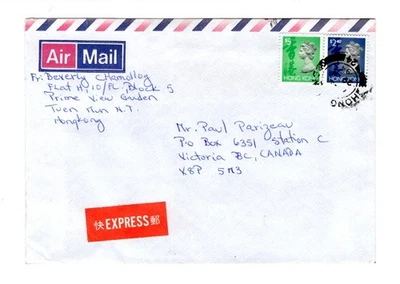 Air Mail
$5
HONG KONG
$2.40
HONG KONG
HONG
Fr: Beverly
Flat H, 10/FL Block 5
Prime View Garden
Tuen Mun N.T.
Hongkong
Mr. Paul Parizeau
P.O Box 6351 Station C
Victoria BC, CANADA
V8P 5M3
快 EXPRESS 郵